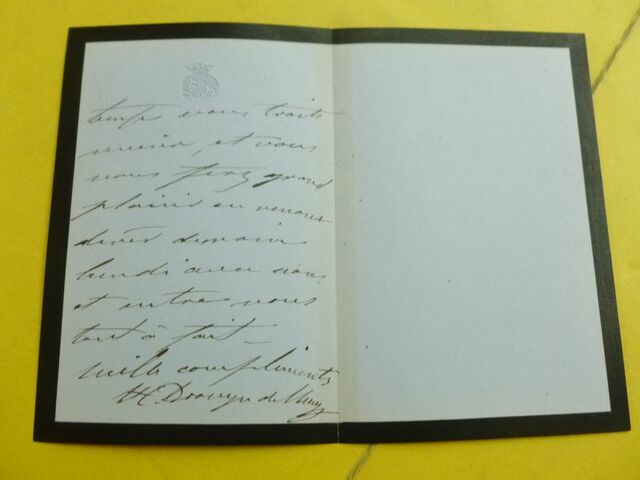 temps vous trait
mieux, et vous
nous ferez grand
plaisir en venant
diner demain
lundi avec nous
et entre nous
tout à fait –
mille compliments
Drouyn de Lhuys